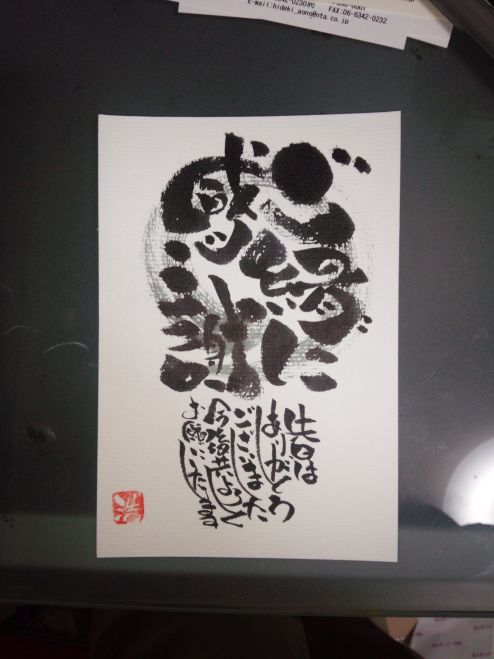 E-mail:hideki_aono@nta.co.jp
FAX:06-6342-0232
ご縁に
感謝
先日は
ありがとう
ございました
今後共よろしく
お願いいたします